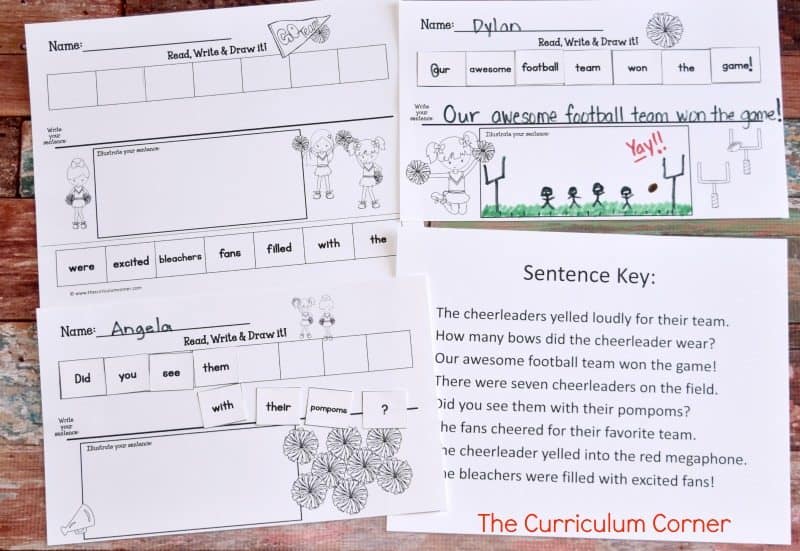 Name:
Read, Write & Draw it!
Write your sentence:
Illustrate your sentence:
were excited bleachers fans filled with the
© www.thecurriculumcorner.com
Name: Dylan
Read, Write & Draw it!
Our awesome football team won the game!
Write your sentence:
Our awesome football team won the game!
Illustrate your sentence:
Yay!!
Name: Angela
Read, Write & Draw it!
Did you see them
with their pompoms ?
Write your sentence:
Illustrate your sentence:
Sentence Key:
The cheerleaders yelled loudly for their team.
How many bows did the cheerleader wear?
Our awesome football team won the game!
There were seven cheerleaders on the field.
Did you see them with their pompoms?
The fans cheered for their favorite team.
The cheerleader yelled into the red megaphone.
The bleachers were filled with excited fans!
The Curriculum Corner